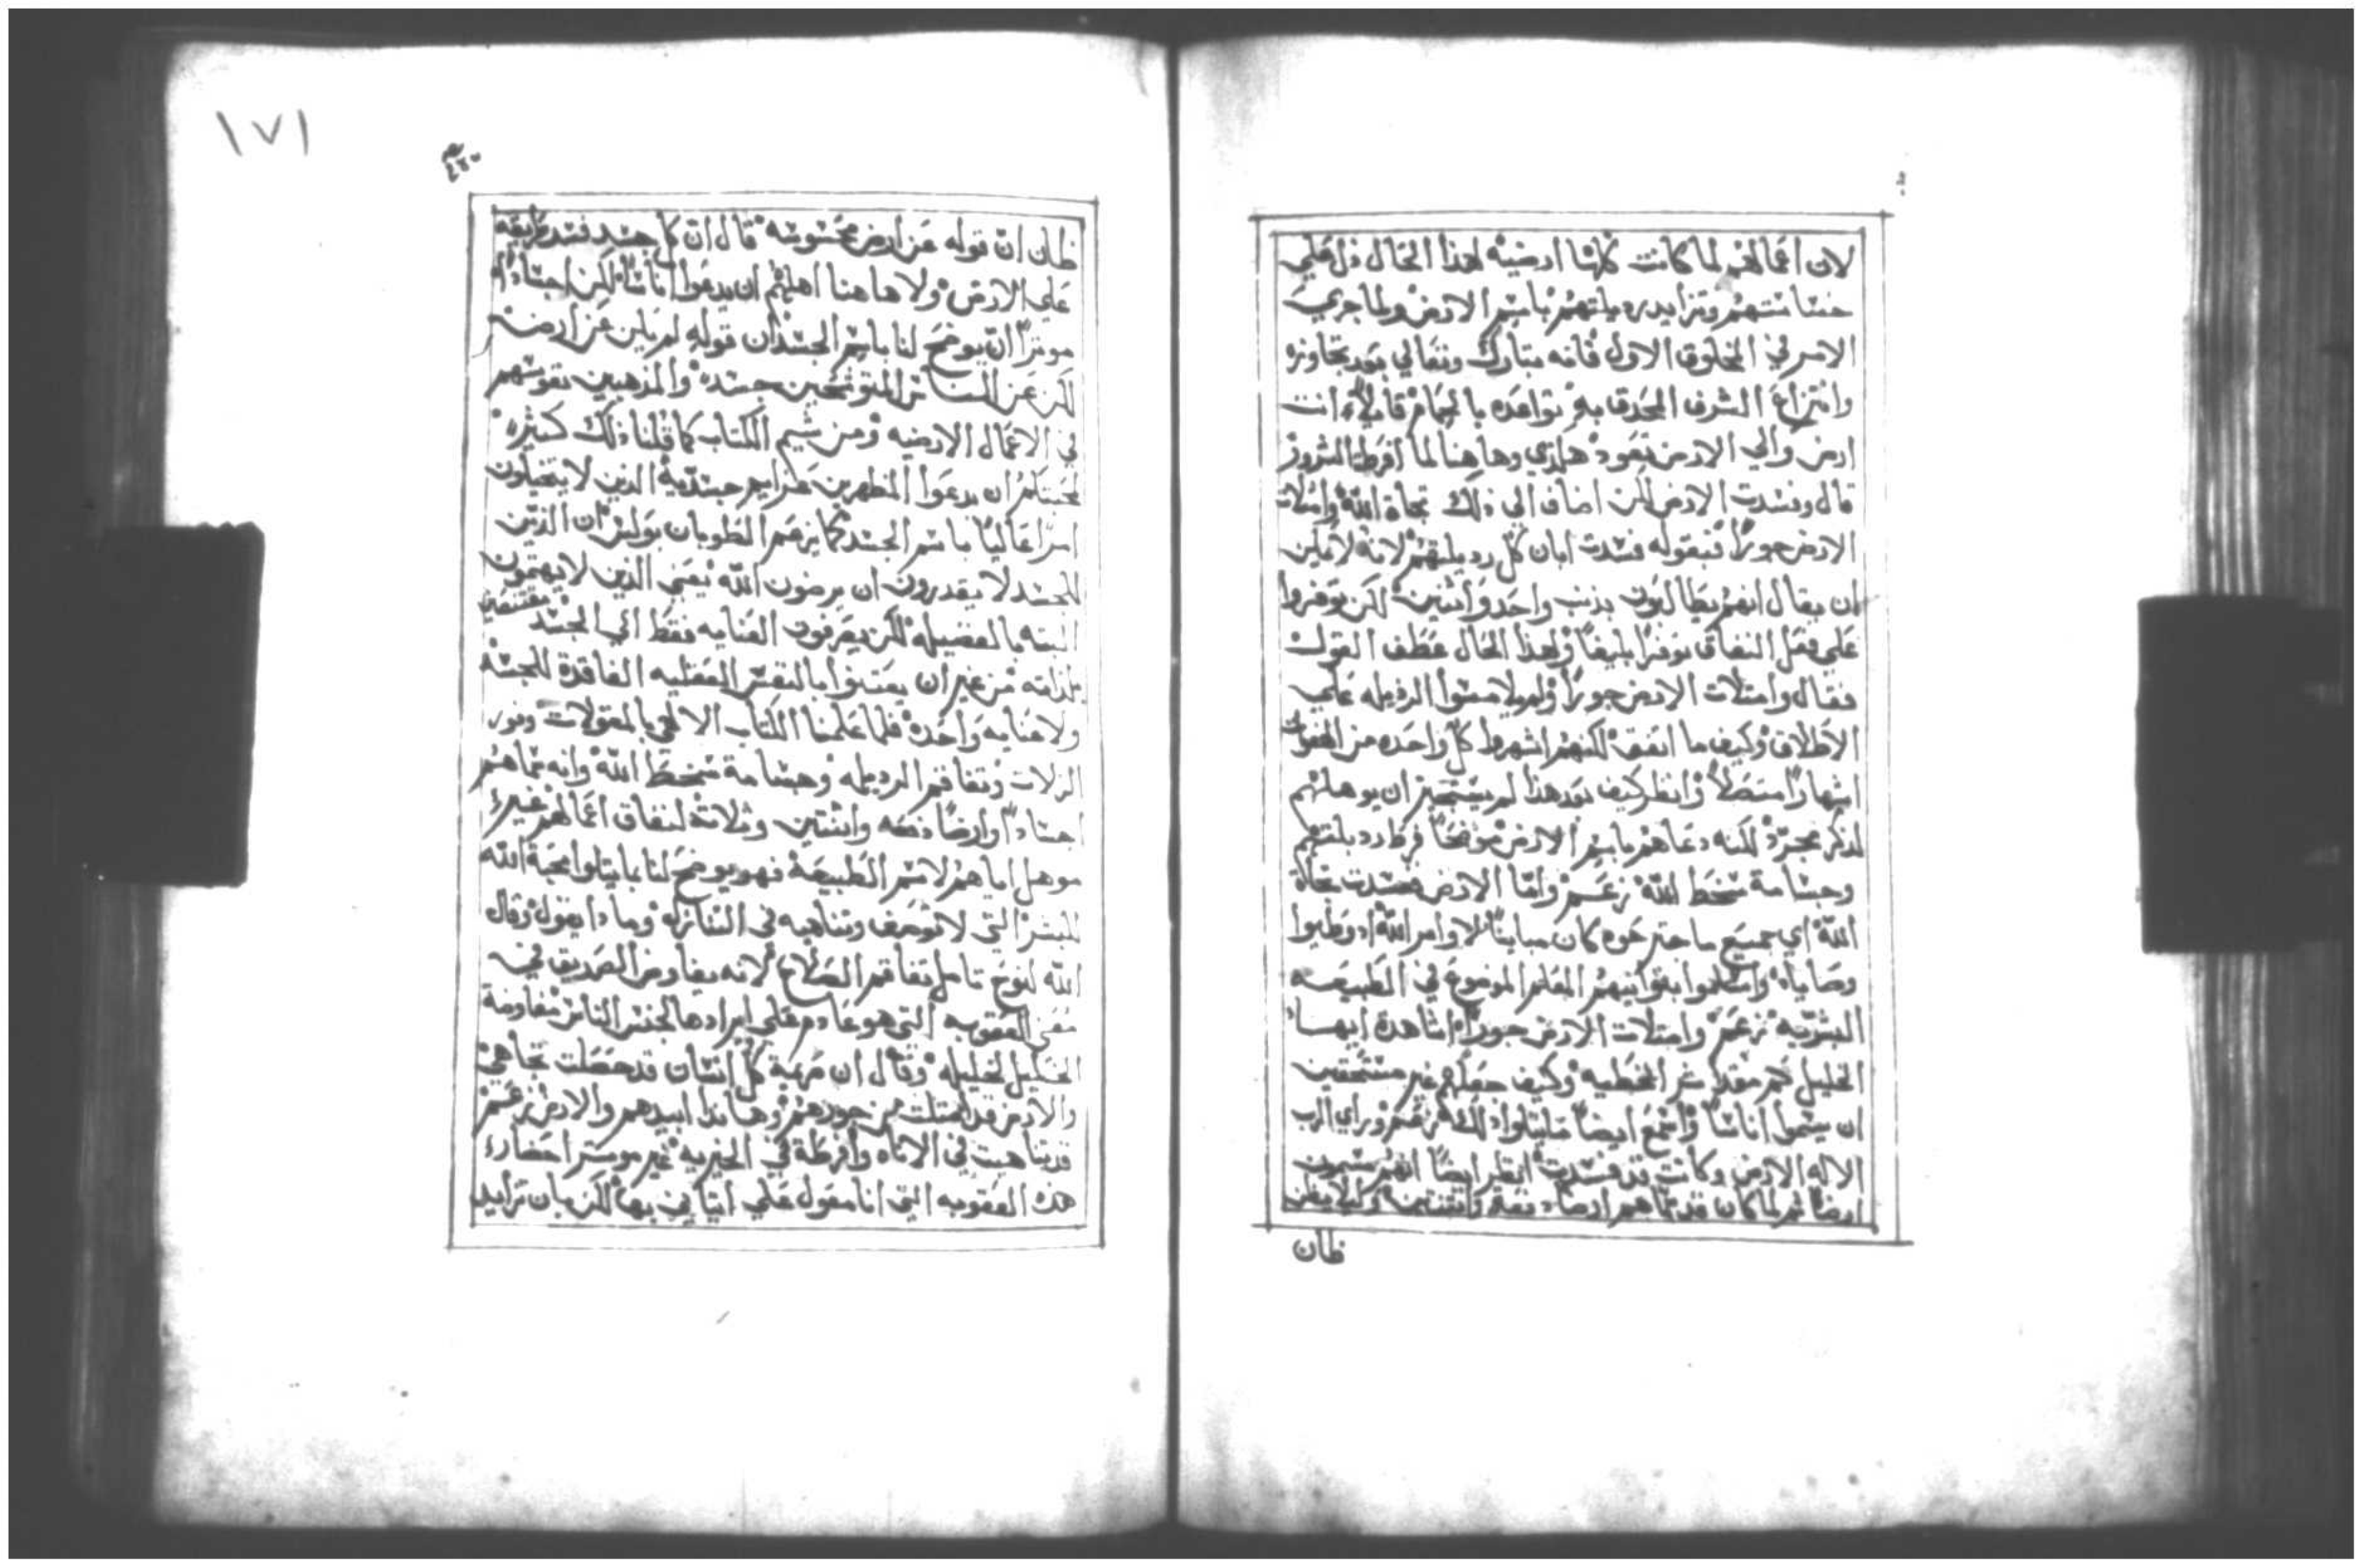 لان اعمالهم لما كانت كلها ارضيه لهذا الحال دل علي
خساستهم وتزايد رديلتهم باسم الارض ولما جري
الامر في المخلوق الاول فانه تبارك وتعالي بعد تجاوزه
وانتزاع الشرف المحدق به تواعده بالحمام قايلاً انت
ارض والي الارض تعود هكذي وهاهنا لما افرطة الشرور
قال وفسدت الارض لكن اضاف الي ذلك تجاة الله وامتلات
الارض جوراً فبقوله فسدت ابان كل رديلتهم لانه لا يمكن
ان يقال انهم يطالبون بذنب واحد واثنين لكن توفروا
علي فعل النفاق توفراً بليغاً ولهذا الحال عطف القول
فقال وامتلات الارض جوراً ولم يلامسوا الرذيله علي
الاطلاق وكيف ما اتفق لكنهم اشهروا كل واحده من الهفوات
اشهاراً وانظر كيف بعد هذا لم يستجيز ان يوهلهم
لذكر مجرد لكنه دعاهم باسم الارض موضحاً فرط رديلتهم
وجسامة سخط الله زعم واما الارض ففسدت تجاة
الله اي جميع ما اجترحوه كان مبايناً لاوامر الله اد وطيوا
وصاياه المعلم الموضوع في الطبيعه
البشريه زعم وامتلات الارض جوراً اشاهدة ايها
الخليل كم مقدار شر الخطيه وكيف جعلهم غير مستحقين
ان يسموا اناساً واسمع ايضاً ما يتلوا ذلك زعم وراي الرب
الاله الارض وكانت قد فسدت انظر ايضاً انهم يسمون
ارضاً ثم لما كان قد سماهم ارضاً دفعه واثنتين وكيلا يظن
ظان
١٧١
ظان ان قوله عن ارض محسوسه قال ان كل جسد فسد طريقه
علي الارض ولا هاهنا اهلهم ان يدعوا اناساً لكن اجساداً
موثراً ان يوضح لنا باسم الجسد ان قوله لم يكن عن ارض
لكن عن الناس المتوشحين جسده والمذهبين نفوسهم
في الاعمال الارضيه ومن شيم الكتاب كما قلنا ذلك كثيره
ان يدعوا المظهرين جسديه الذين لا يتخيلون
امراً عالياً باسم الجسد كما يزعم الطوبان بولس ان الذين
للجسد لا يقدرون ان يرضون الله يعني الذين لا يهتمون
البته بالفضيله لكن يصرفون العنايه فقط الي الجسد
من غير ان يعتنوا بالنفس العقليه الفاقدة للجسد
ولا عنايه واحده فلما علمنا الكتاب الالهي
الزلات وتفاقم الرديله وجسامة سخط الله وانه سماهم
اجساداً وارضاً دفعه واثنتين وثلاثة لنفاق اعمالهم غير
موهل اياهم لاسم الطبيعة فهو يوضح لنا بما يتلوا محبة الله
للبشر التي لا توصف وتناهيه في التنازل وماذا يقول وقال
الله لنوح تامل تفاقم الصلاح لانه يفاوض الصديق في
العقوبه التي هو عازم علي ايرادها لجنس الناس مفاوضة
الخليل لخليله وقال ان مهبة كل انسان قد حصلت تجاهي
والارض قد امتلت من جورهم وهانذا ابيدهم والارض زعم
قد تناهيت في الاناه وافرطة في الخيريه غير موثر احضار
هذه العقوبه التي انا معول علي اتياني بها لكن بان تزايد